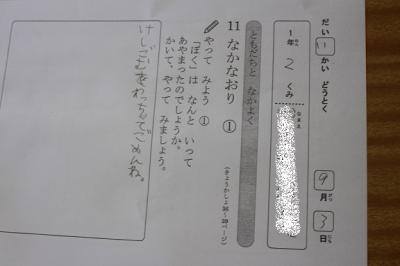 だい11かい どうとく
1年 2くみ
なまえ
9月3日
ともだちと なかよく
11 なかなおり ①
(きょうかしょ36~39ページ)
やって みよう ①
「ぼく」は なんと いって
あやまったのでしょうか。
かいて、やって みましょう。
けしごむをわっちゃってごめんね。